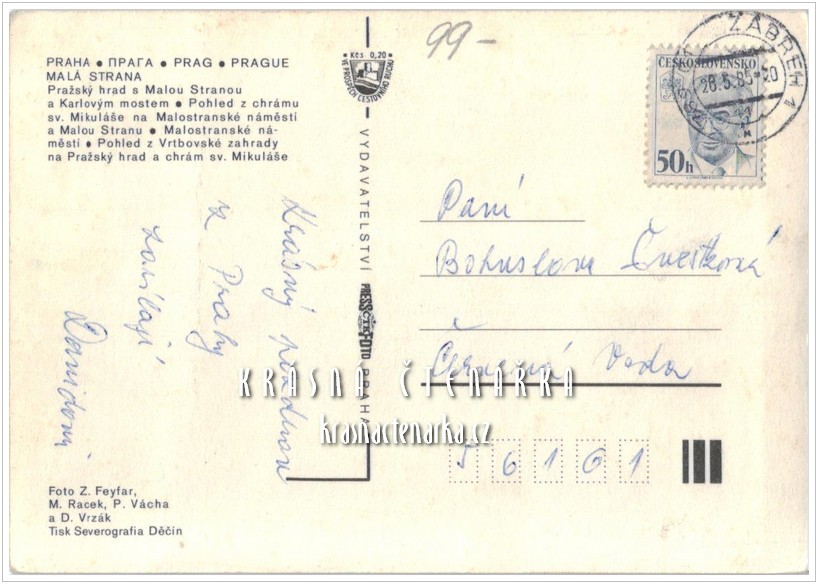 PRAHA • ПРАГА • PRAG • PRAGUE
MALÁ STRANA
Pražský hrad s Malou Stranou
a Karlovým mostem • Pohled z chrámu
sv. Mikuláše na Malostranské náměstí
a Malou Stranu • Malostranské ná-
městí • Pohled z Vrtbovské zahrady
na Pražský hrad a chrám sv. Mikuláše
Krásný pozdrav
z Prahy
zasílají
Foto Z. Feyfar,
M. Racek, P. Vácha
a D. Vrzák
Tisk Severografia Děčín
Kčs 0,20
VE PROSPĚCH CESTOVNÍHO RUCHU
VYDAVATELSTVÍ PRESSFOTO PRAHA
ČTK
99-
ZÁBŘEH 1
28.5.85
ČESKOSLOVENSKO
50h
Paní
Bohuslava Cvestková
Červená Voda
56101
KRÁSNÁ ČTENÁRKA
krasnactenarka.cz